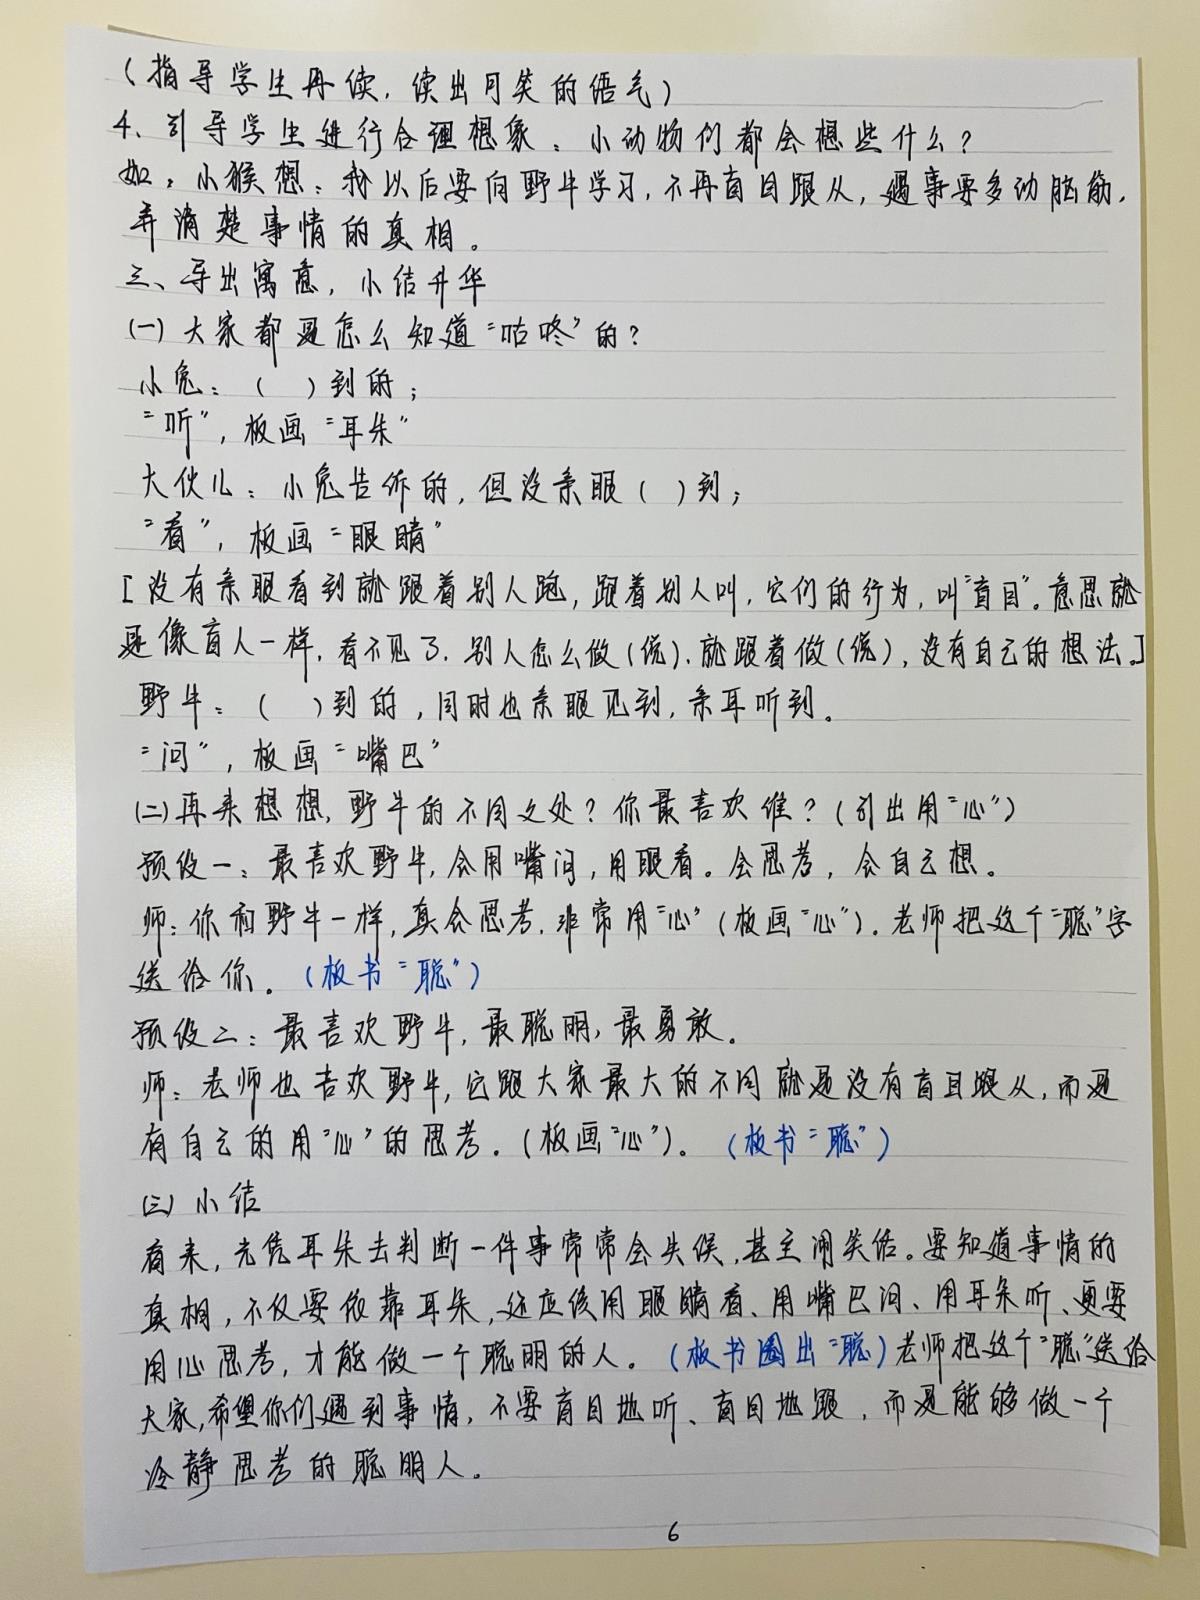 （指导学生再读，读出可笑的语气）
4、引导学生进行合理想象：小动物们都会想些什么？
如：小猴想：我以后要向野牛学习，不再盲目跟从，遇事要多动脑筋，
弄清楚事情的真相。
三、导出寓意，小结升华
(一)大家都是怎么知道“咕咚”的？
小兔：（ ）到的；
“听”，板画“耳朵”
大伙儿：小兔告诉的，但没亲眼（ ）到；
“看”，板画“眼睛”
[没有亲眼看到就跟着别人跑，跟着别人叫，它们的行为，叫“盲目”。意思就
是像盲人一样，看不见了，别人怎么做(说)，就跟着做(说)，没有自己的想法。]
野牛：（ ）到的，同时也亲眼见到，亲耳听到。
“问”，板画“嘴巴”
(二)再来想想，野牛的不同之处？你最喜欢谁？（引出用“心”）
预设一：最喜欢野牛，会用嘴问，用眼看。会思考，会自己想。
师：你和野牛一样，真会思考，非常用“心”（板画“心”）。老师把这个“聪”字
送给你。（板书“聪”）
预设二：最喜欢野牛，最聪明，最勇敢。
师：老师也喜欢野牛，它跟大家最大的不同就是没有盲目跟从，而是
有自己的用“心”的思考。（板画“心”）。（板书“聪”）
(三)小结
看来，光凭耳朵去判断一件事常常会失误，甚至闹笑话。要知道事情的
真相，不仅要依靠耳朵，还应该用眼睛看、用嘴巴问、用耳朵听、更要
用心思考，才能做一个聪明的人。（板书圈出“聪”）老师把这个“聪”送给
大家，希望你们遇到事情，不要盲目地听、盲目地跟，而是能够做一个
冷静思考的聪明人。
6